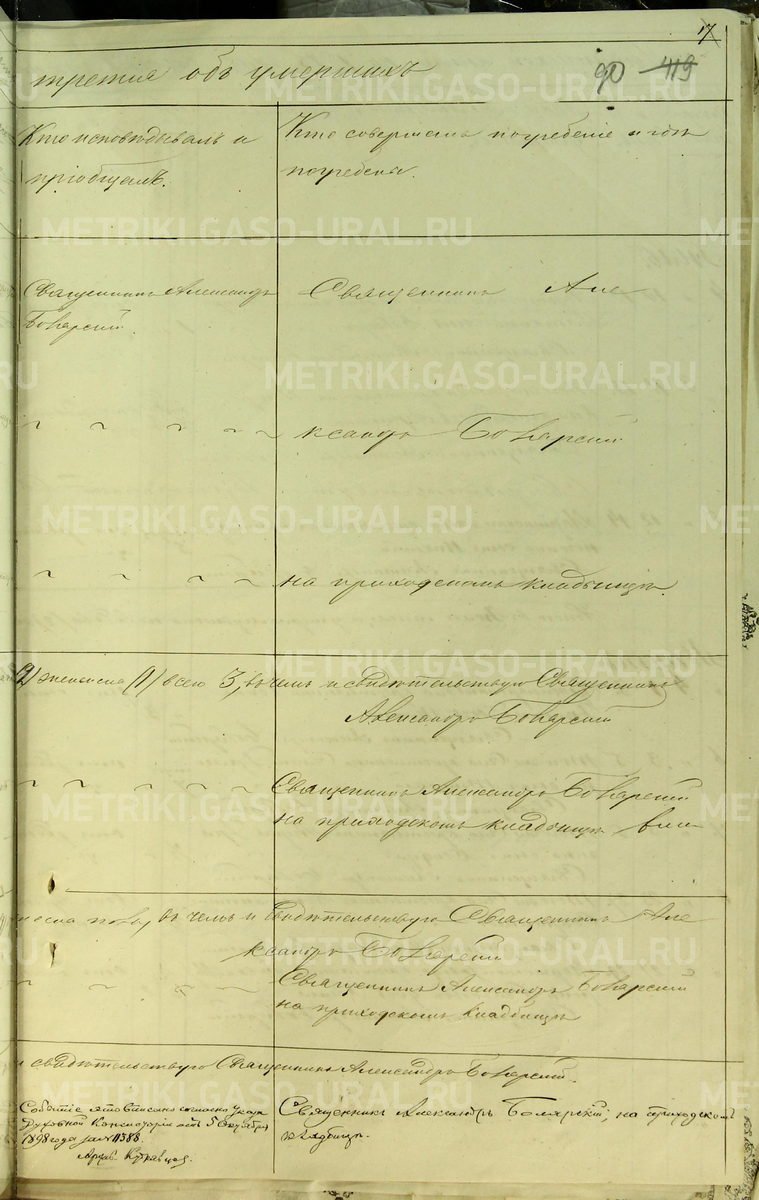 17
третия объ умершихъ
90 419
Кто исповѣдывалъ и
пріобщалъ.
Кто совершалъ погребеніе и гдѣ
погребены.
Священникъ Александръ
Боярскій.
Священникъ Але
ксандръ Боярскій
на приходскомъ кладбищѣ.
(2) женска (1) всего 3, въ чемъ и свидѣтельствую Священникъ
Александръ Боярскій
Священникъ Александръ Боярскій
на приходскомъ кладбищѣ
въ чемъ и свидѣтельствую Священникъ Але
ксандръ Боярскій
Священникъ Александръ Боярскій
на приходскомъ кладбищѣ
и свидѣтельствую Священникъ Александръ Боярскій.
Событіе это вписано согласно указа
Духовной Консисторіи отъ 5 Октября
1898 года за № 11388
Священникъ Александръ Боярскій; на приходскомъ
кладбищѣ.
METRIKI.GASO-URAL.RU